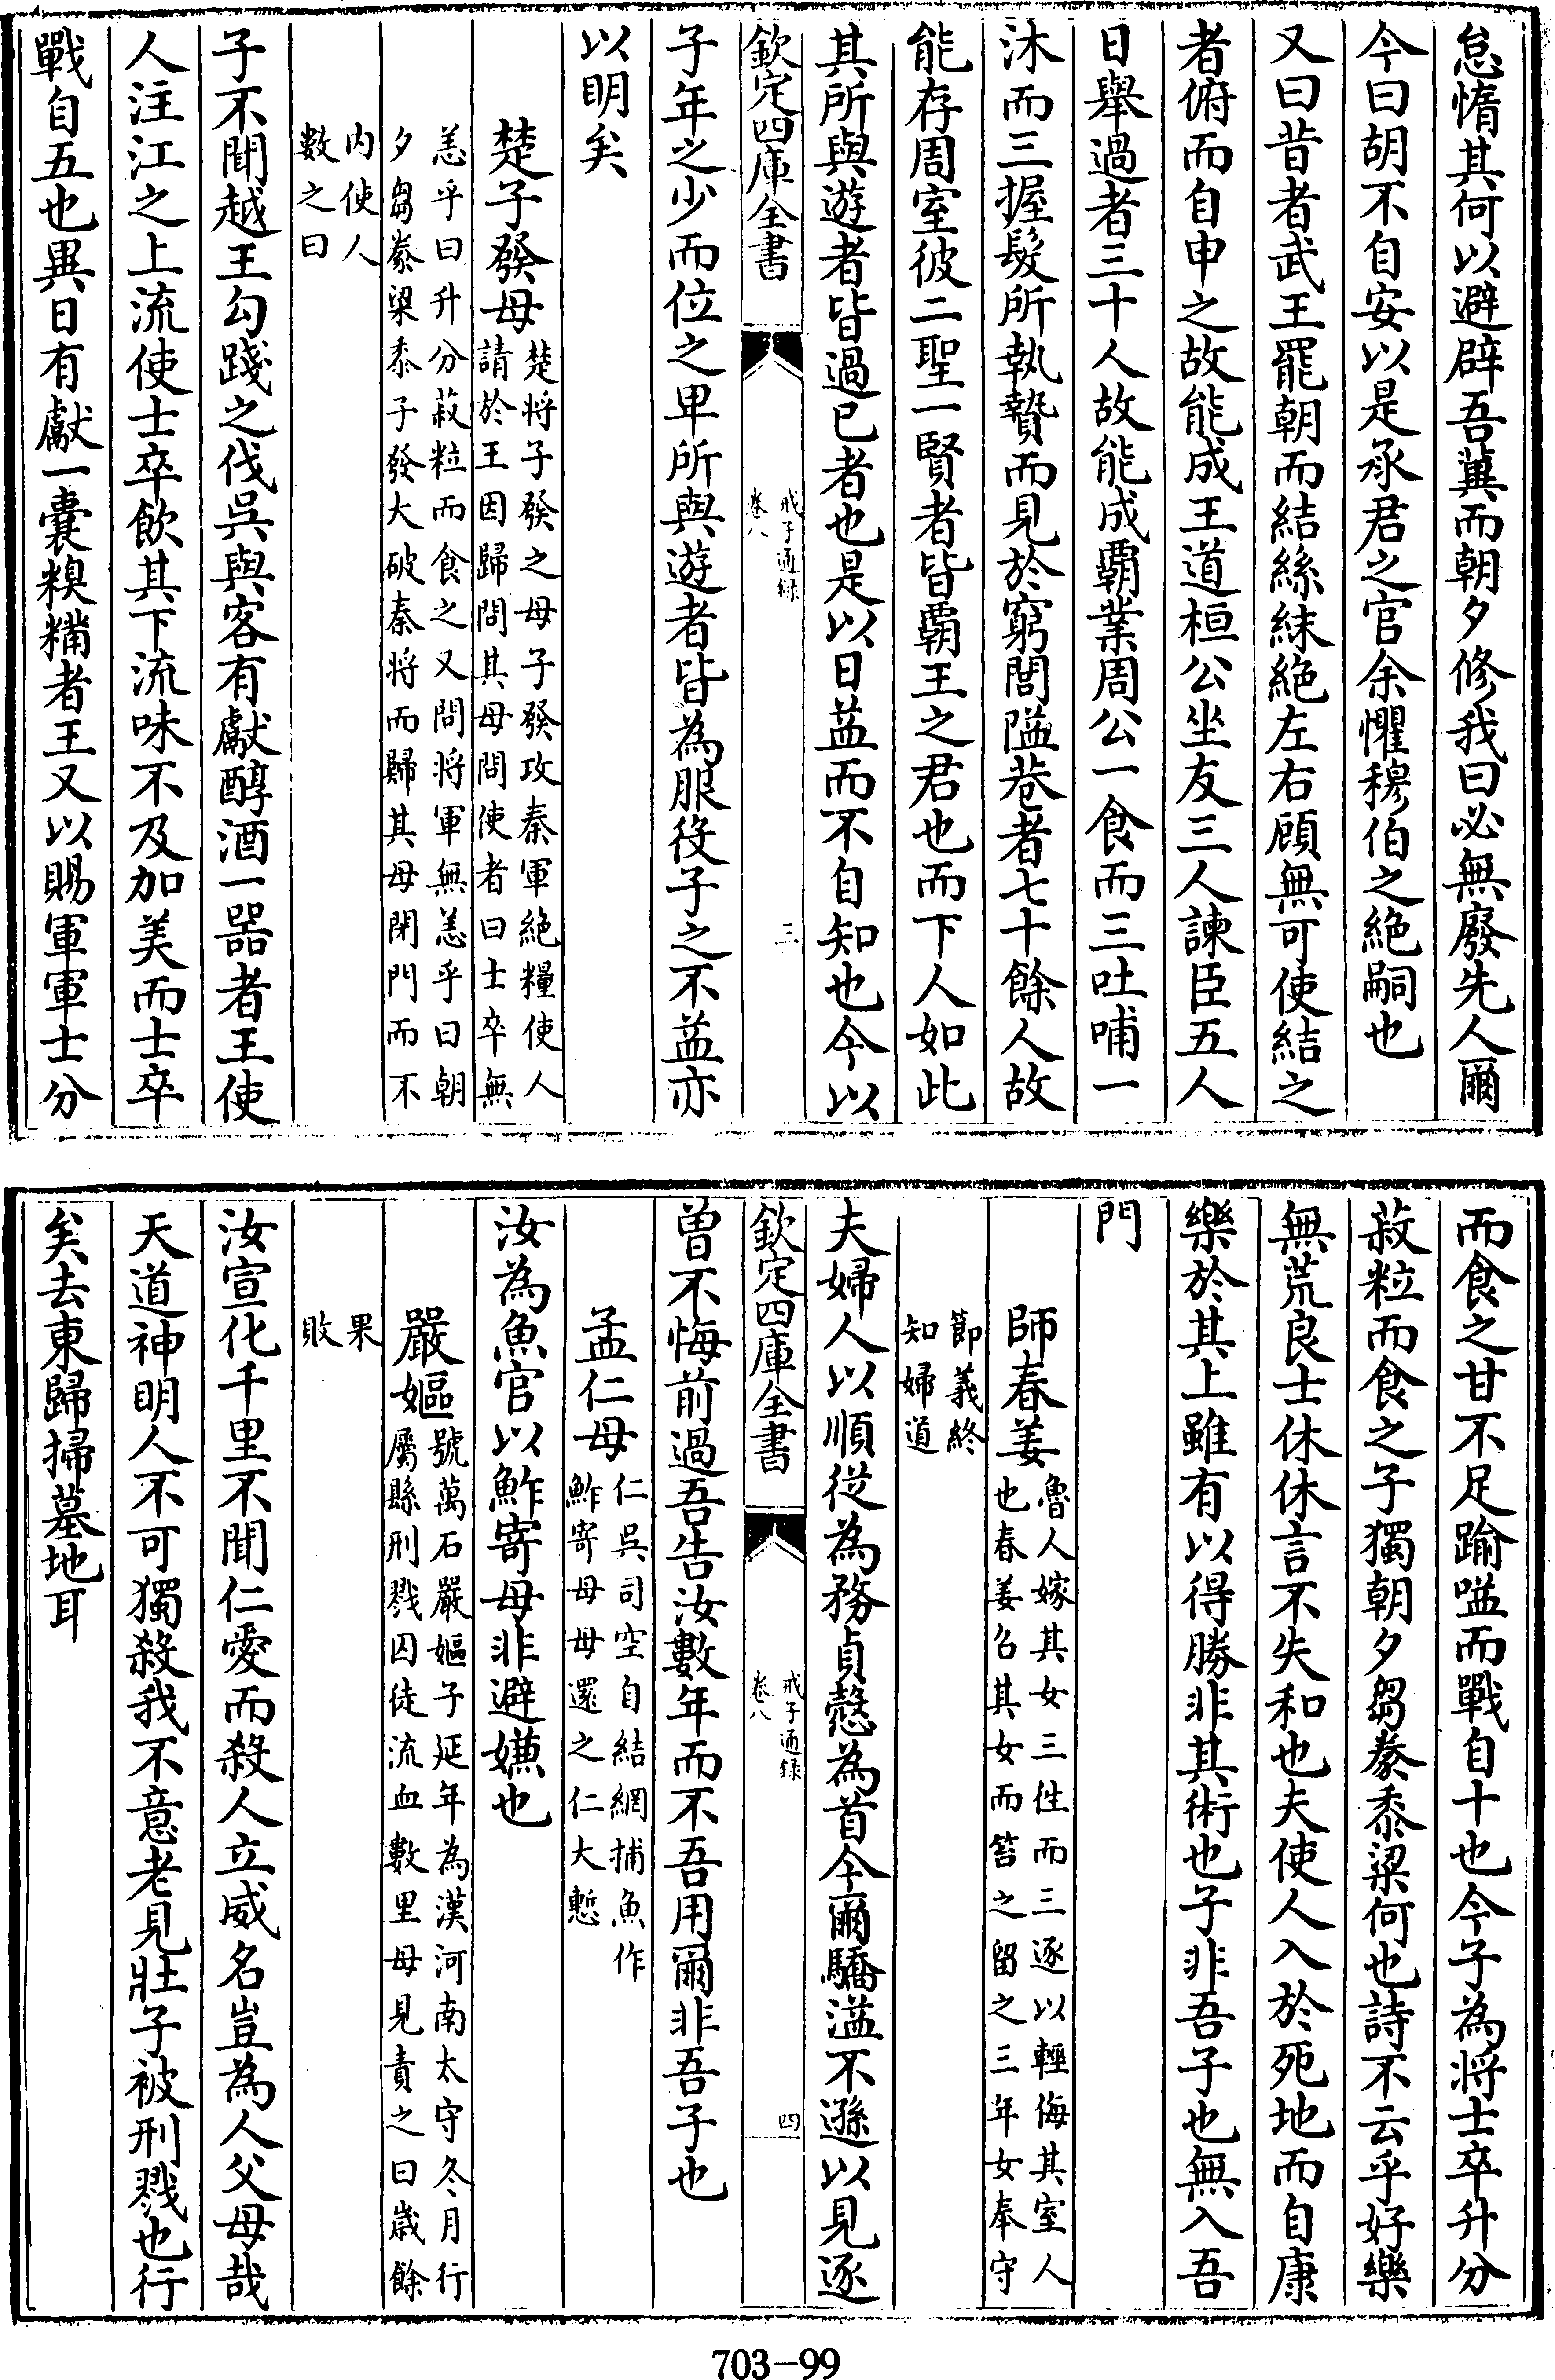 怠惰其何以避辟吾冀而朝夕修我曰必無廢先人爾
今曰胡不自安以是承君之官余懼穆伯之絶嗣也
又曰昔者武王罷朝而結絲絉絶左右顧無可使結之
者俯而自申之故能成王道桓公坐友三人諫臣五人
日舉過者三十人故能成覇業周公一食而三吐哺一
沐而三握髮所執贄而見於窮閭隘巷者七十餘人故
能存周室彼二聖一賢者皆覇王之君也而下人如此
其所與遊者皆過已者也是以日益而不自知也今以
欽定四庫全書
戒子通録
卷八
三
子年之少而位之卑所與遊者皆為服役子之不益亦
以明矣
楚子發母楚將子發之母子發攻秦軍絶糧使人
請於王因歸問其母母問使者曰士卒無
恙乎曰升分菽粒而食之又問將軍無恙乎曰朝
夕芻豢粱黍子發大破秦將而歸其母閉門而不
内使人
數之曰
子不聞越王勾踐之伐吳與客有獻醇酒一器者王使
人注江之上流使士卒飲其下流味不及加美而士卒
戰自五也異日有獻一囊糗糒者王又以賜軍軍士分
而食之甘不足踰嗌而戰自十也今子為將士卒升分
菽粒而食之子獨朝夕芻豢黍粱何也詩不云乎好樂
無荒良士休休言不失和也夫使人入於死地而自康
樂於其上雖有以得勝非其術也子非吾子也無入吾
門
師春姜魯人嫁其女三徃而三逐以輕侮其室人
也春姜召其女而笞之留之三年女奉守
節義終
知婦道
夫婦人以順從為務貞慤為首今爾驕溢不遜以見逐
欽定四庫全書
戒子通録
卷八
四
曾不悔前過吾告汝數年而不吾用爾非吾子也
孟仁母仁吳司空自結網捕魚作
鮓寄母母還之仁大慙
汝為魚官以鮓寄母非避嫌也
嚴嫗號萬石嚴嫗子延年為漢河南太守冬月行
屬縣刑戮囚徒流血數里母見責之曰歳餘
果
敗
汝宣化千里不聞仁愛而殺人立威名豈為人父母哉
天道神明人不可獨殺我不意老見壯子被刑戮也行
矣去東歸掃墓地耳
703-99